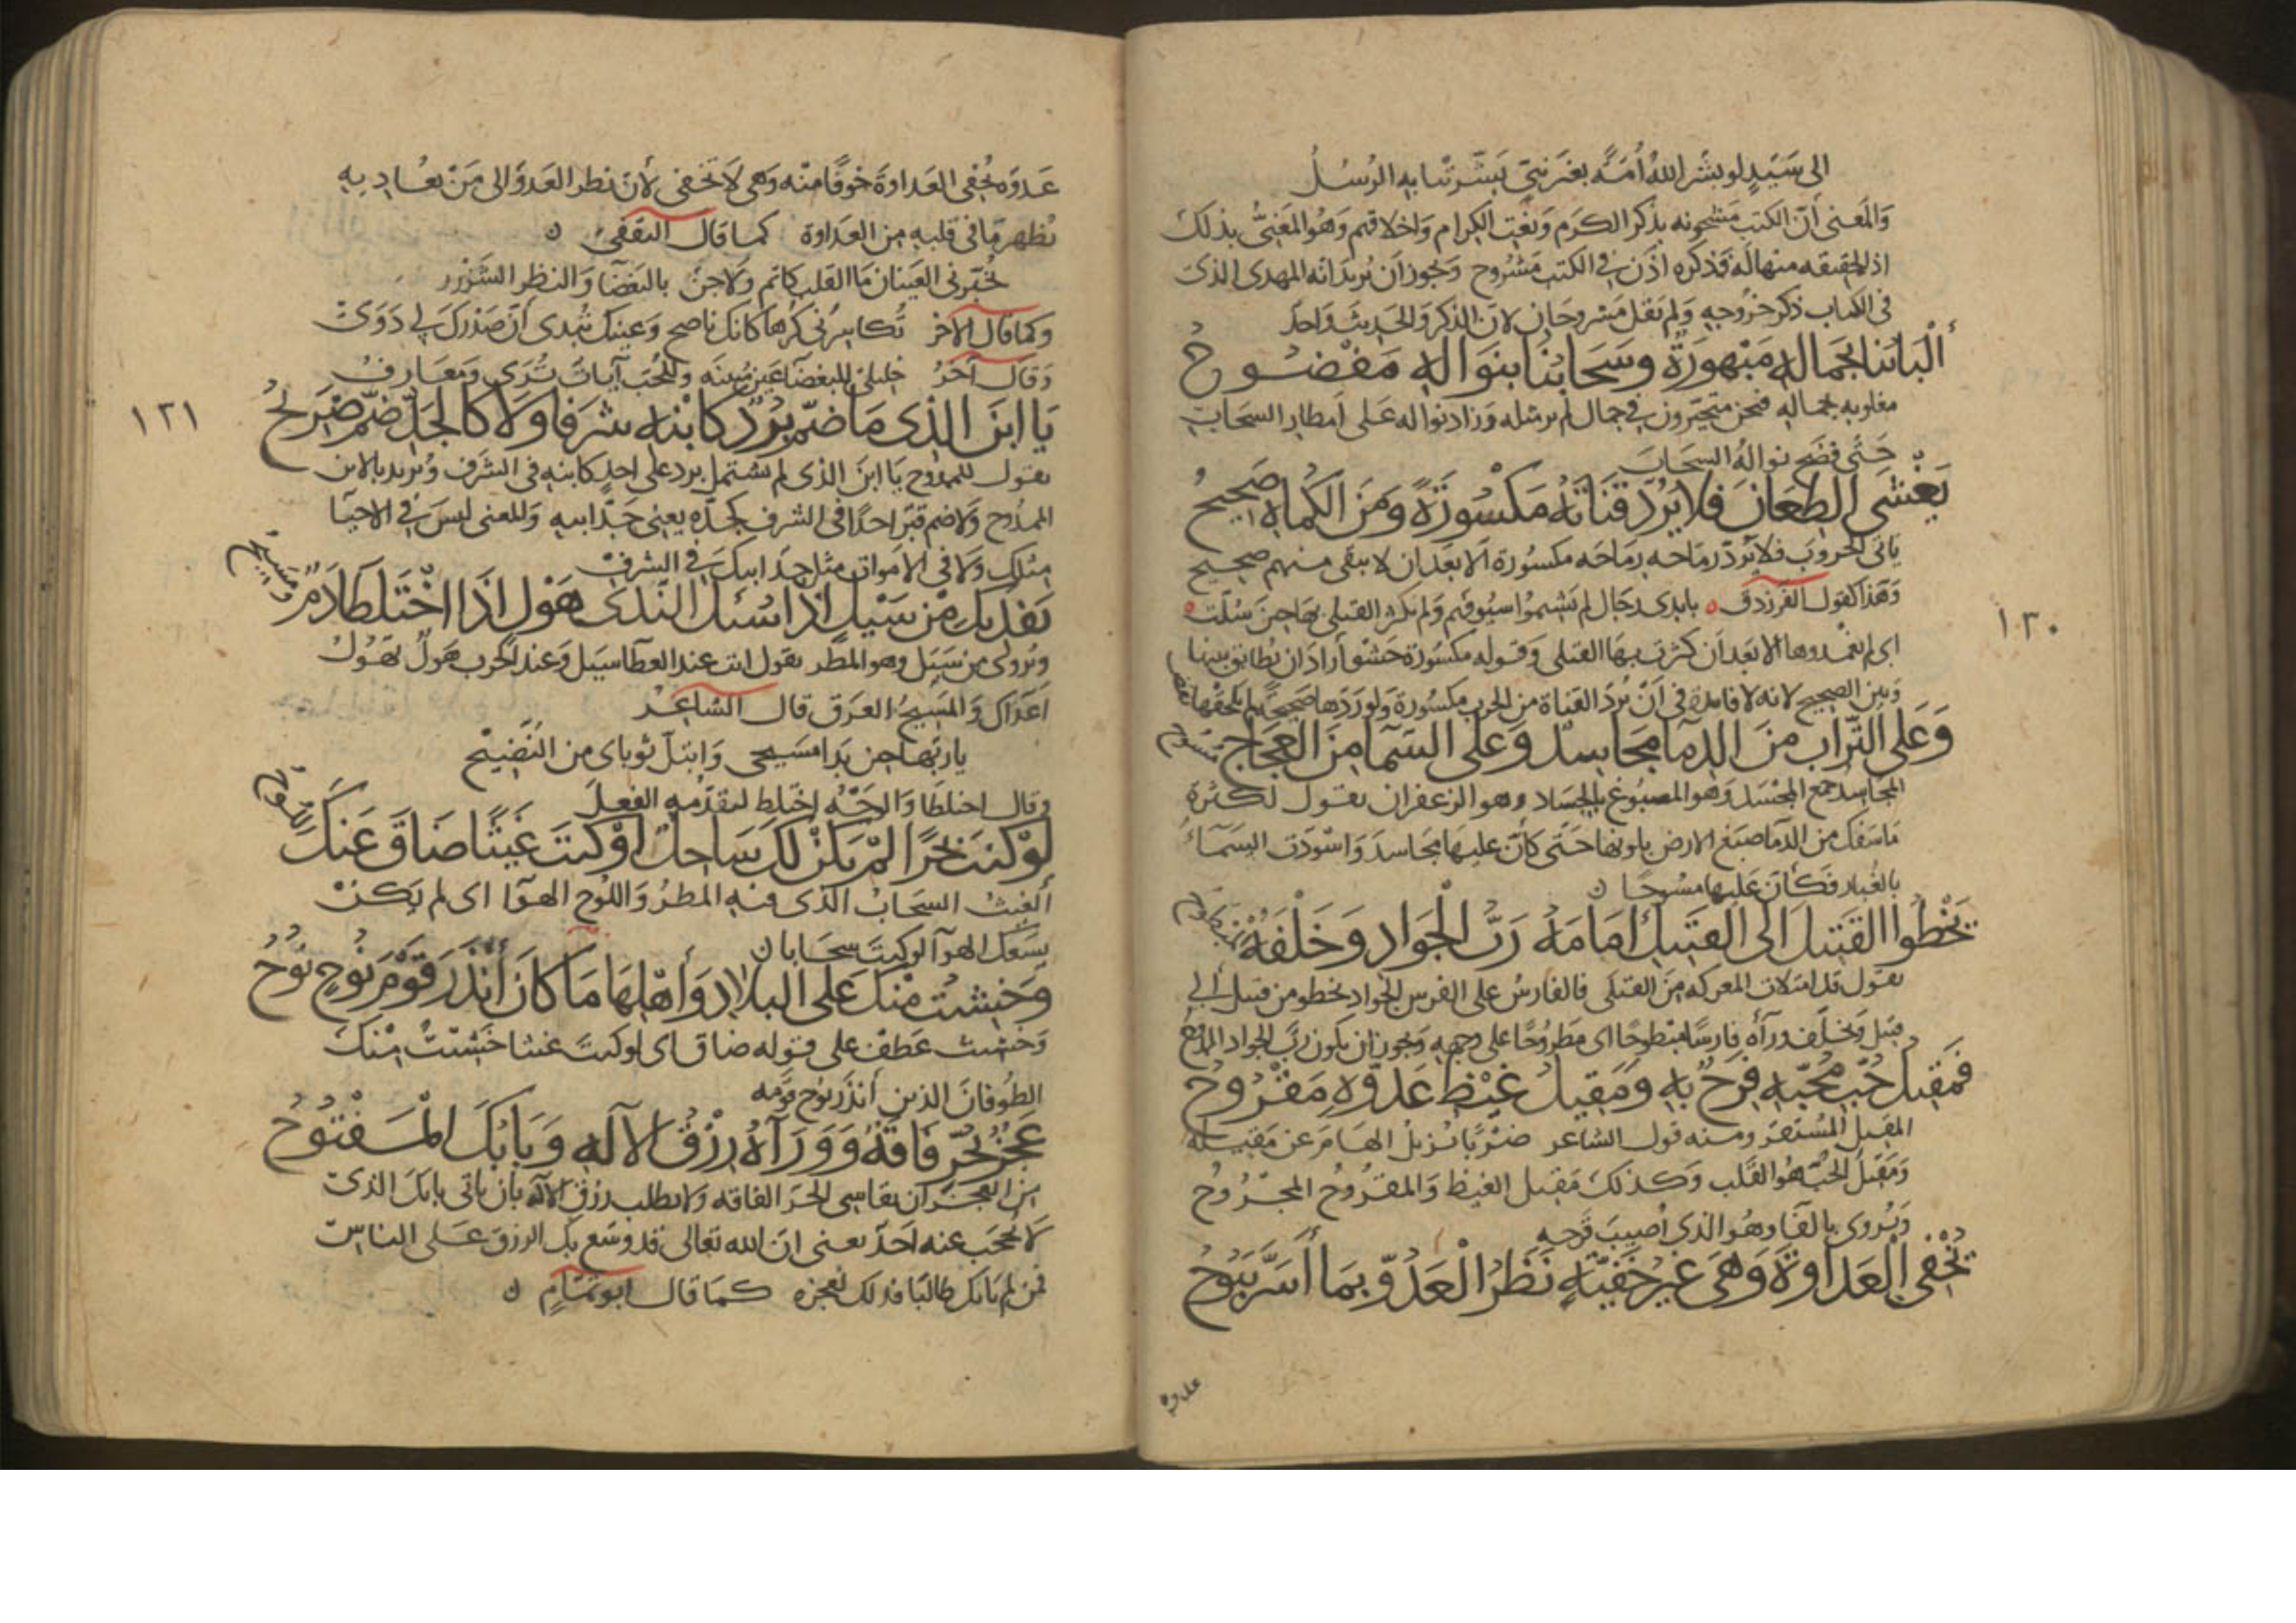 الى سَيّدٍ لو بشّر اللهُ أُمّةً بغير نبيّ بَشّرتنا به الرُسُلُ
وَالمَعنى أنّ الكتب مشحونه بذكر الكرَم وَنعْت الكِرام وَاخلاقهم وَهُو المَعْنِىُّ بذلك
اذ الحقيقه منها له فذكره اذن في الكتب مَشْروح وَيجوز ان يُريد انه المهدى الذى
فى الكتاب ذكر خرُوجهِ وَلم يَقل مَشروحَان لانّ الذكر وَالحَديث وَاحدٌ
ألْبَابُنا بجَمالهِ مَبْهورَةٌ وسَحَابُنا بنوَالهِ مَفْضُوحُ
مغلوبه بجماله فنحن متحيّرون في جمال لم ير مثله وَزاد نواله عَلى أمطار السحَاب
حَتّى فضَح نوالهُ السحَابَ
يَغْشى الطِعَانَ فلا يَرُدّ قَنَاتَهُ مَكْسُورَةً وَمِنَ الكُمَاةِ صَحِيحُ
ياتى الحروبَ فلا يَرُدّ رماحه رمَاحَه مكسُورة الا بعد ان لا يبقى منهم صحيح
وَهَذا كقول الفرزدق ه بايدى رجَال لم يَشيموا سيُوفهم وَلم تكثر القتلى بهَا حين سُلّت ه
اى لم يغمدوها الا بعد ان كثرت بهَا القتلى وَقوله مكسورَة حَشْو أراد ان يُطابق بينها
وَبين الصحيح لانه لا فايدة فى أنْ يُردّ القناة من الحرب مكسُورة وَلو رَدّها صَحيحَة لم يلحقها نقص
وَعَلى التّرَاب مِنَ الدِمآ مجَاسِدٌ وَعَلى السّمآ مِنَ العَجَاجِ مُسوح
المجَاسد جمع المجْسَد وَهو المصبُوغ بالجسَاد وهو الزعفران يقول لكثرة
مَا سَفك من الدّمآ صبغ الارض بلونها حَتّى كأنّ عليهَا مجَاسدَ وَاسْودّت السَمآء
بالغُبار فكأنّ عَليها مسُوحًا ن
يَخْطُوا القَتِيلَ الى القَتِيلِ امَامَهُ رَبُّ الجَوَادِ وَخَلْفَهُ مَبْطوح
يقول قد امتلات المعركه مِنَ القتلى فالفارسُ على الفرس الجوادِ يخطو من قتيل إلى
قتيل وَيخلّف ورآه فارسًا مبطوحًا اى مَطروُحًا على وجههِ وَيجوز ان يكون ربّ الجواد الممدوح
فَمَقِيلُ حُبّ مُحِبّهِ فَرِحٌ بهِ وَمَقِيلُ غَيْظِ عَدُوّهِ مَقْرُوحُ
المقيل المُستقر ومنه قول الشاعر ضرْبًا يُزيلُ الهَامَ عَن مَقيلهِ
وَمَقيلُ الحُبّ هُو القَلب وَكذلكَ مَقيل الغيظ وَالمقرُوحُ المجْرُوحُ
وَيُروى بالفآ وهُو الذى أصيبَ قرحِه
تُخْفِى العَدَاوَةَ وَهىَ غَيْرُ خَفِيّةٍ نَظَرُ الْعَدُوِّ بمَا أَسَرَّ يَبُوحُ
عدوه
١٢٠
عَدوّه يُخْفِى العَداوَةَ خوفًا منه وَهى لا تَخفى لأنّ نظر العَدوّ الى مَنْ يعُاديهِ
يُظهر مَا فى قلبهِ من العَداوة كما قال الثقفى ن
تُخبّرنى العَينان مَا القلب كاتم وَلا جنّ بالبَغضآ وَالنظرِ الشَّزْرِ
وكما قال الآخر تُكاشِرُنى كَرْهًا كانك ناصح وَعينك تُبدى أنّ صَدْرَكَ لى دَوِى
وَقال آخرُ خليلىّ للبغضآء عَين مُبينَه وَللحُبّ آياتٌ تُرَى وَمعَارفُ
يَا ابنَ الذِى مَا ضَمّ بُرْدٌ كَابْنهِ شرَفًا وَلا كالجَدِّ ضَمّ ضَرِيحُ
يقول للممدوح يَا ابنَ الذى لم يشتمل برد على احدٍ كابنهِ فى الشَرَف وَيُريد بالابن
الممدُوح وَلا ضم قبر احدًا فى الشرف كجَدّه يعنى جَدّ ابيهِ وَالمعنى ليسَ فى الاحيآ
مثلك وَلا فى الاموات مثل جدّ ابيك في الشرف
نَفْديكَ مِنْ سَيْلٍ اذا سُئلَ النّدَى هَوْلٍ اذَا اخْتَلَطا دَمٌ وَمسيح
وَيُروى من سَبَل وهو المطر يقول انت عند العطآ سَيل وَعند الحَرب هَولٌ يَهُولُ
اعَدَاك وَالمَسِيحُ العَرَق قال الشاعِرُ
يا ريّها حين بَدا مسيحى وَابتلّ ثوباى من النَّضيحْ
وقال اختلطَا وَالوَجْهُ اختلط لتقدّمهِ الفعلَ
لَوْ كنتَ بَحْرًا لمْ يَكنْ لكَ سَاحِلٌ اوْ كنتَ غَيثًا ضَاقَ عَنكَ اللُّوحُ
ألغيث السحَابُ الذى فيهِ المَطرُ وَاللّوح الهوآ اى لم يَكنْ
يسَعك الهوآ لو كنتَ سحَابا ن
وَخَشيتُ مِنكَ عَلى البِلادِ وَأهْلهَا مَا كانَ أَنْذَرَ قوْمَ نُوحٍ نُوحُ
وَخشيتُ عَطف على قوله ضاق اى لو كنتَ غيثا خَشيتُ مِنكَ
الطُوفانَ الذى أَنذَرَ نوُح قومه
عَجْزٌ بحُرٍّ فَاقَةٌ وَوَرَآءهُ رِزْقُ الآلهِ وَبَابُكَ المَفْتُوحُ
من العجز ان يقاسى الحرّ الفاقه وَلا يطلب رزق الآله بان ياتى بابك الذى
لا يُحجَب عنه احَدٌ يعنى انّ الله تعَالى قد وسّع بك الرزق عَلى الناس
فمن لم ياتك طالبًا فذلك لعجزه كما قال ابو تمّامٍ ن
١٢١